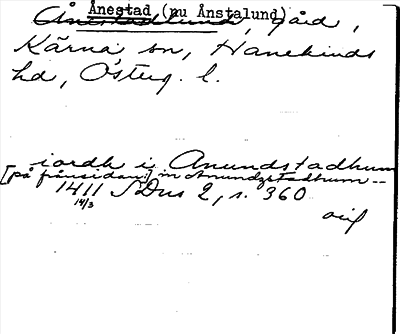 Ånestad (nu Ånstalund)
gård,
Kärna sn, Hanekinds
hd, Österg. l.
iordh i Anundstadhum
[på frånsidan:] in Anundzstadhum --
1411 14/3 SDns 2, s. 360
orig